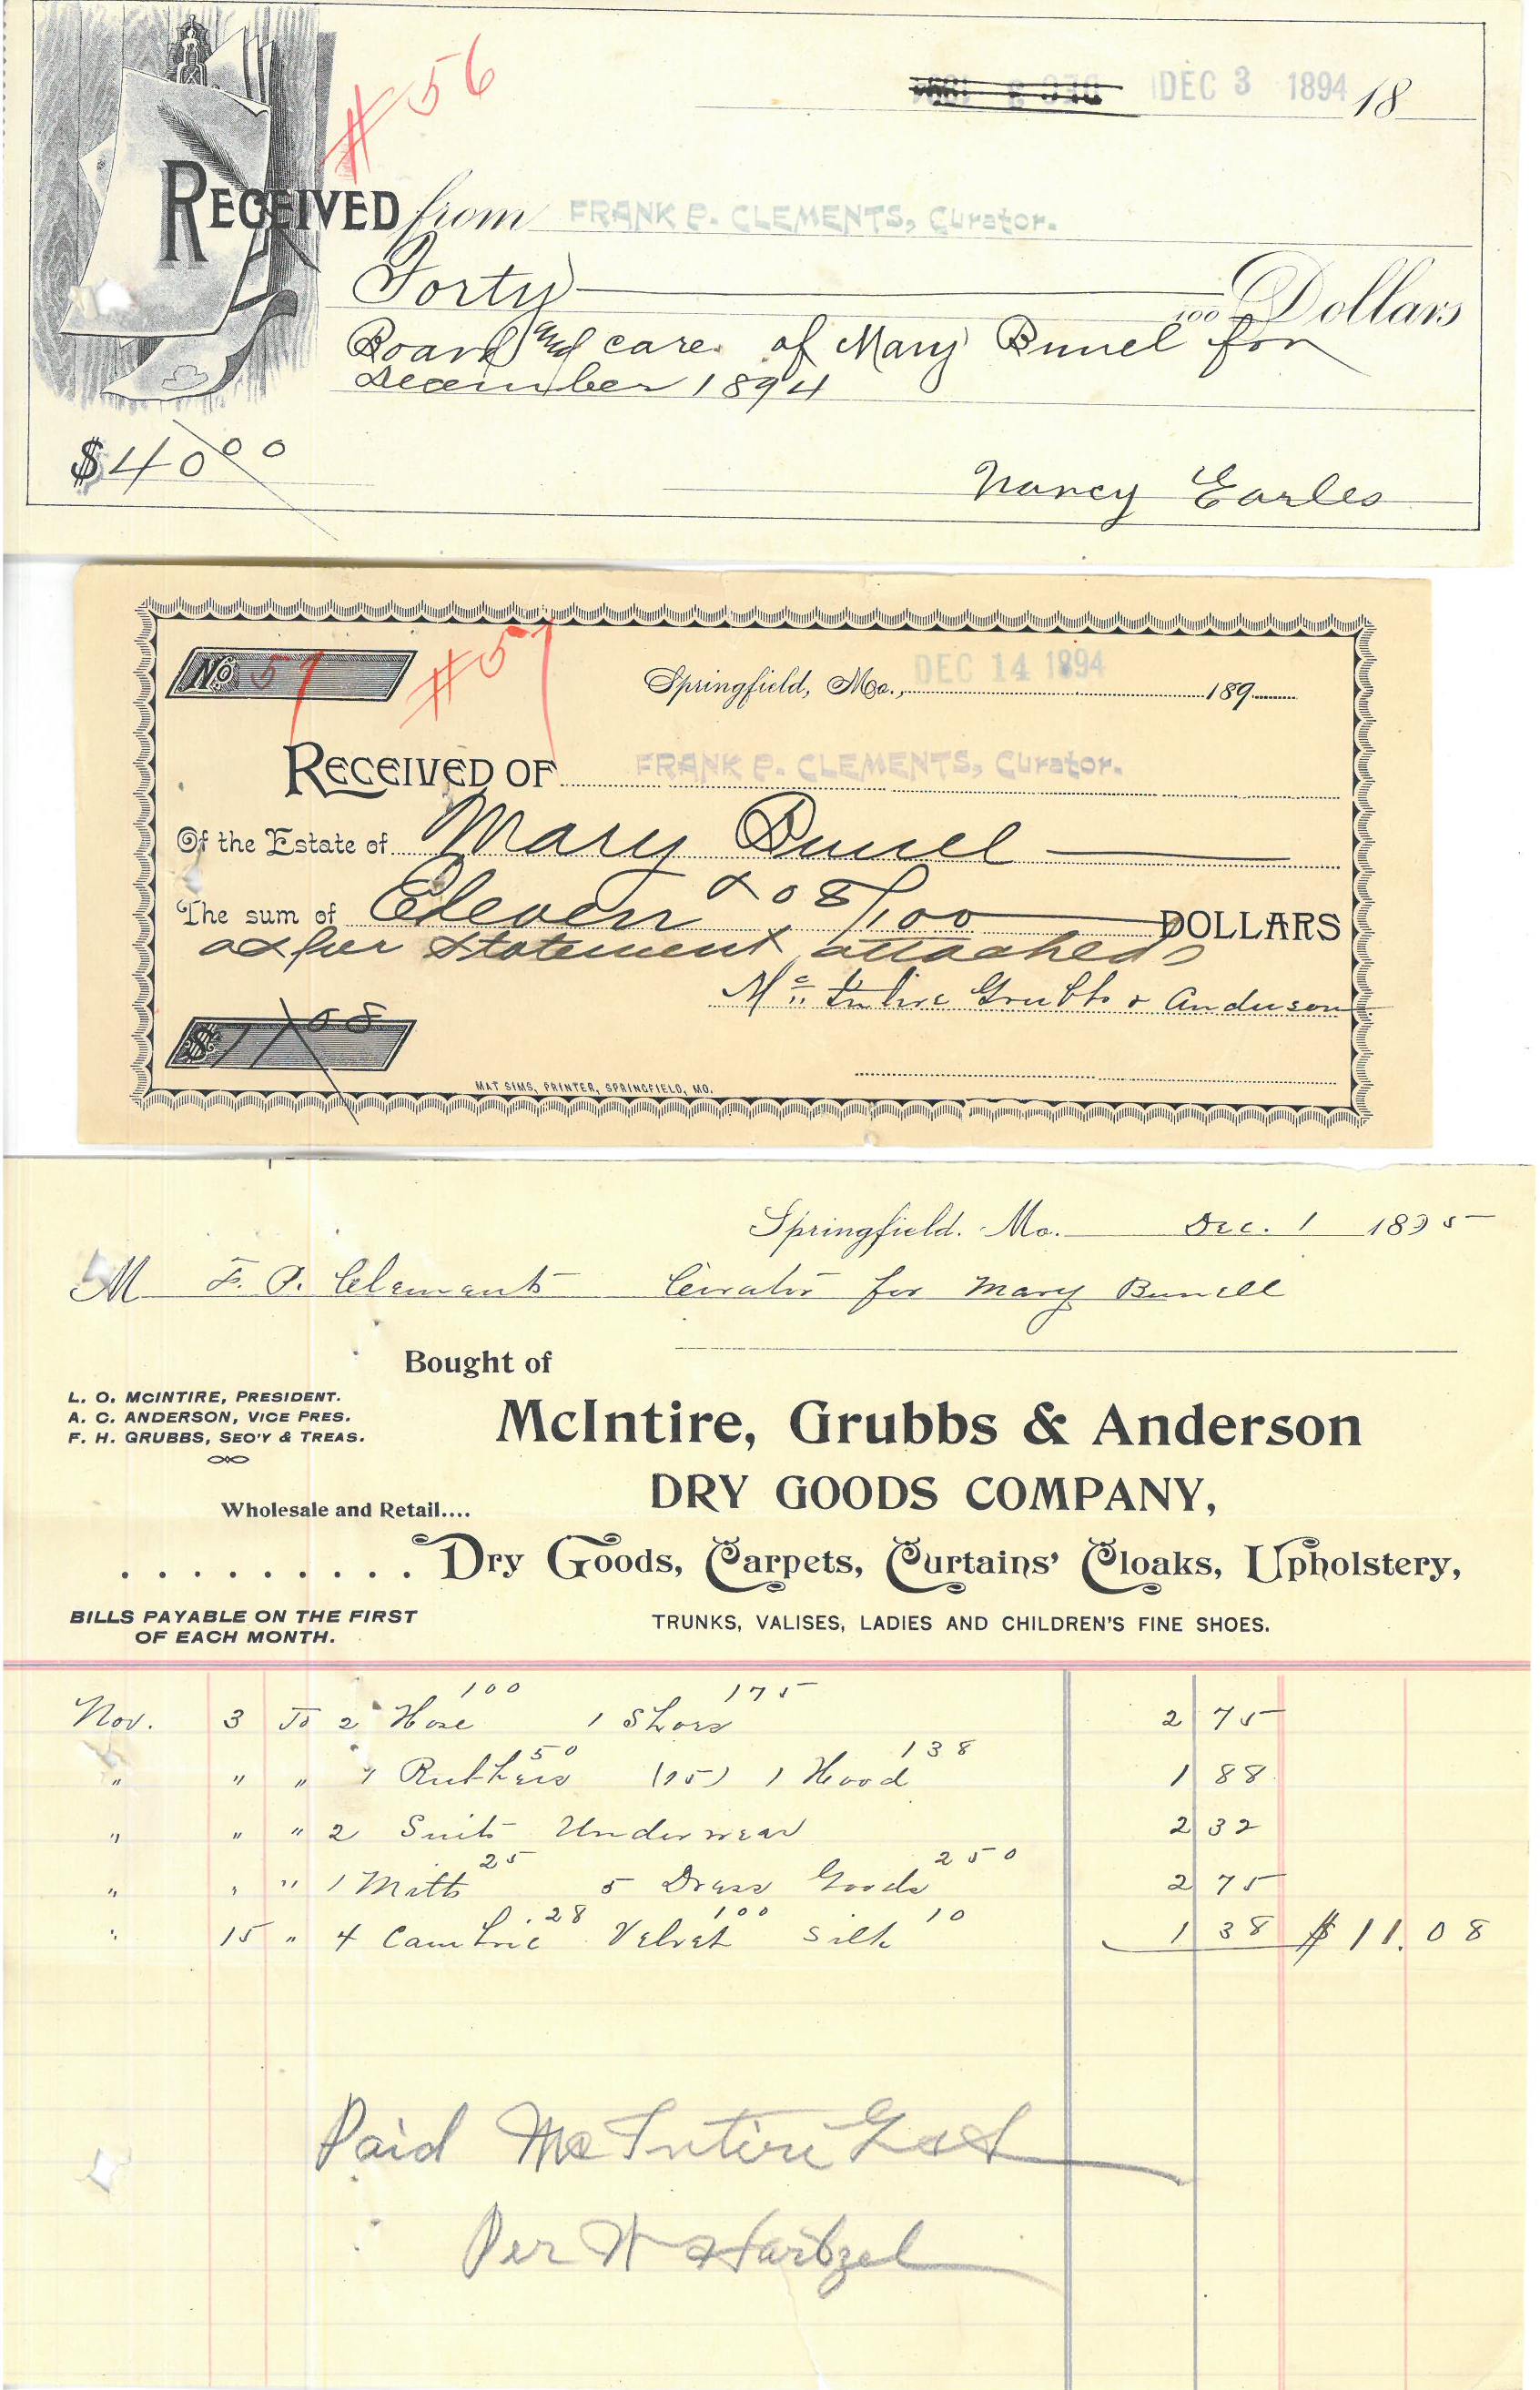 # 56
DEC 3 1894 18
RECEIVED from FRANK P. CLEMENTS, Curator.
Forty
100 Dollars
Board and care of Mary Bunel for
December 1894
$40 00
Nancy Earles
No. 57 # 57
Springfield, Mo., DEC 14 1894 189
RECEIVED OF FRANK P. CLEMENTS, Curator.
Of the Estate of Mary Bunel
The sum of Eleven & 08/100 DOLLARS
as per statement attached
McIntire Grubbs & Anderson
$ 11 08
MAT SIMS, PRINTER, SPRINGFIELD, MO.
Springfield. Mo. Dec. 1 1895
M F. P. Clements Curator for Mary Bunell
Bought of
L. O. MCINTIRE, PRESIDENT.
A. C. ANDERSON, VICE PRES.
F. H. GRUBBS, SEC'Y & TREAS.
McIntire, Grubbs & Anderson
DRY GOODS COMPANY,
Wholesale and Retail....
. . . . . . . . . Dry Goods, Carpets, Curtains' Cloaks, Upholstery,
BILLS PAYABLE ON THE FIRST
OF EACH MONTH.
TRUNKS, VALISES, LADIES AND CHILDREN'S FINE SHOES.
Nov. 3 To 2 Hose 100 1 Shoes 175 2 75
" " " 1 Rubbers 50 (75) 1 Hood 138 1 88
" " " 2 Suits Underwear 2 32
" " " 1 Mitts 25 5 Dress Goods 250 2 75
" 15 " 4 Cambric .28 Velvet 100 Silk 10 1 38 $11.08
Paid McIntire G & A
Per Hartzel